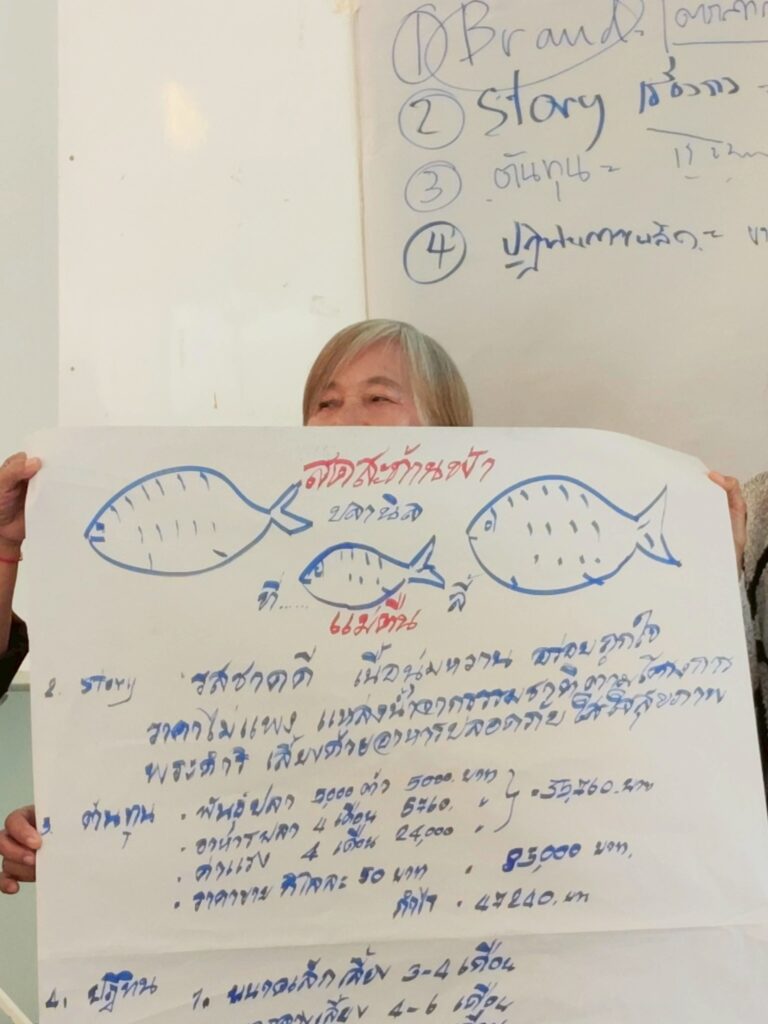 ① Brand =
② Story เรื่องราว =
③ ต้นทุน =
④ ปฏิทินการผลิต =
สดสะท้านฟ้า
ปลานิล
ที่...... ลี้
แม่ตืน
2. Story รสชาดดี เนื้อนุ่มหวาน อร่อยถูกใจ
ราคาไม่แพง แหล่งน้ำจากธรรมชาติตามโครงการ
พระดำริ เลี้ยงด้วยอาหารปลอดภัย ใส่ใจสุขภาพ
3. ต้นทุน • พันธุ์ปลา 5,000 ตัว 5000 บาท
• อาหารปลา 4 เดือน 5760. " 35,760. บาท
• ค่าแรง 4 เดือน 24,000 "
• ราคาขาย กิโลละ 50 บาท • 83,000 บาท.
กำไร • 47240. บาท
4. ปฏิทิน 1. ขนาดเล็กเลี้ยง 3-4 เดือน
เลี้ยง 4-6 เดือน